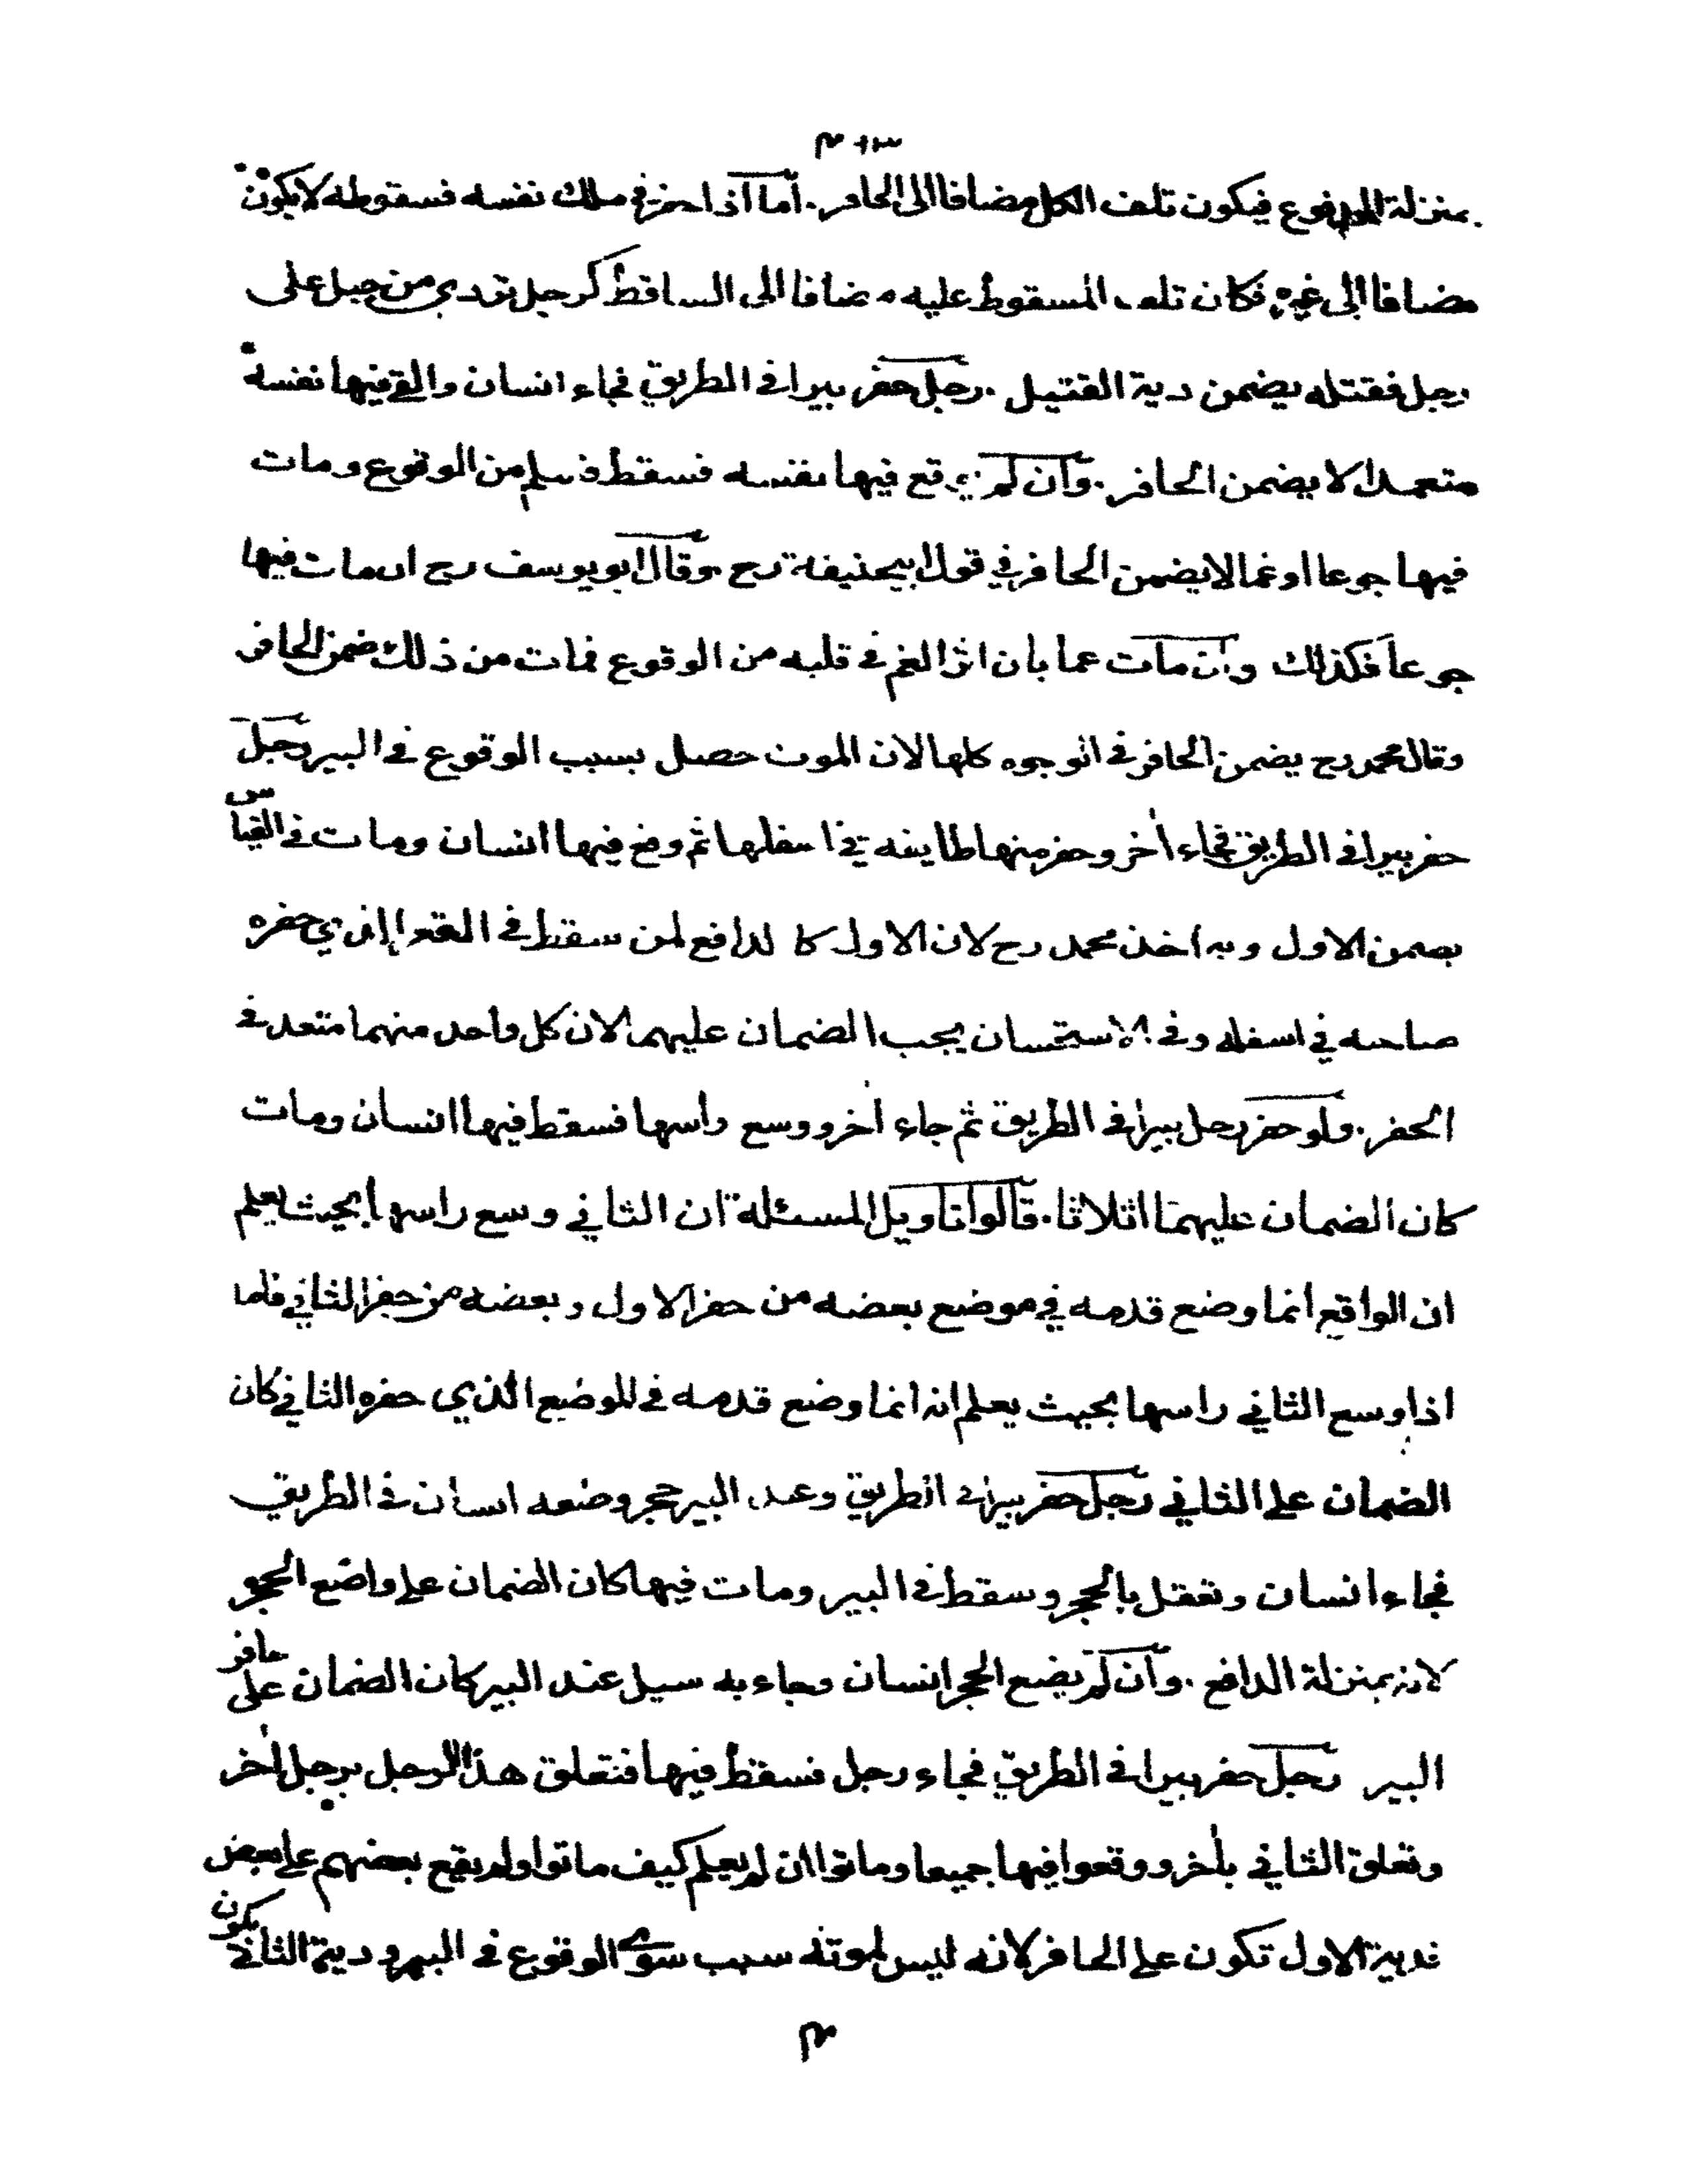 بمنزلة المدفوع فيكون تلف الكل مضافا الى الحافر. اما اذا حفر في ملك نفسه فسقوطه لا يكون
مضافا الى غيره فكان تلف المسقوط عليه مضافا الى الساقط كرجل تردى من جبل على
رجل فقتله يضمن دية القتيل. رجل حفر بيرا في الطريق فجاء انسان والقى فيها نفسه
متعمدا لا يضمن الحافر. وان لم يوقع فيها نفسه فسقط فسلم من الوقوع ومات
فيها جوعا او غما لا يضمن الحافر في قول ابيحنيفة رح وقال ابو يوسف رح ان مات فيها
جوعا فكذلك وان مات غما بان اثر الغم في قلبه من الوقوع فمات من ذلك ضمن الحافر
وقال محمد رح يضمن الحافر في الوجوه كلها لان الموت حصل بسبب الوقوع في البير رجل
حفر بيرا في الطريق فجاء أخر وحفر منها طايفه في اسفلها ثم وقع فيها انسان ومات في القياس
يضمن الاول وبه اخذ محمد رح لان الاول كالدافع لمن سقط في القعر الذي حفره
صاحبه في اسفله وفي الاستحسان يجب الضمان عليهما لان كل واحد منهما متعد في
الحفر. ولو حفر رجل بيرا في الطريق ثم جاء أخر ووسع راسها فسقط فيها انسان ومات
كان الضمان عليهما اثلاثا. قالوا تاويل المسئلة ان الثاني وسع راسها بحيث يعلم
ان الواقع انما وضع قدمه في موضع بعضه من حفر الاول وبعضه من حفر الثاني فاما
اذا وسع الثاني راسها بحيث يعلم انه انما وضع قدمه في الموضع الذي حفره الثاني كان
الضمان على الثاني رجل حفر بيرا في الطريق وعند البير حجر وضعه انسان في الطريق
فجاء انسان وتعقل بالحجر وسقط في البير ومات فيها كان الضمان على واضع الحجر
لانه بمنزلة الدافع. وان لم يضع الحجر انسان وجاء به سيل عند البير كان الضمان على حافر
البير رجل حفر بيرا في الطريق فجاء رجل فسقط فيها فتعلق هذا الرجل برجل أخر
وتعلق الثاني بأخر ووقعوا فيها جميعا وماتوا ان لم يعلم كيف ماتوا ولم يقع بعضهم على بعض
فدية الاول تكون على الحافر لانه ليس لموته سبب سوى الوقوع في البير ودية الثاني يكون